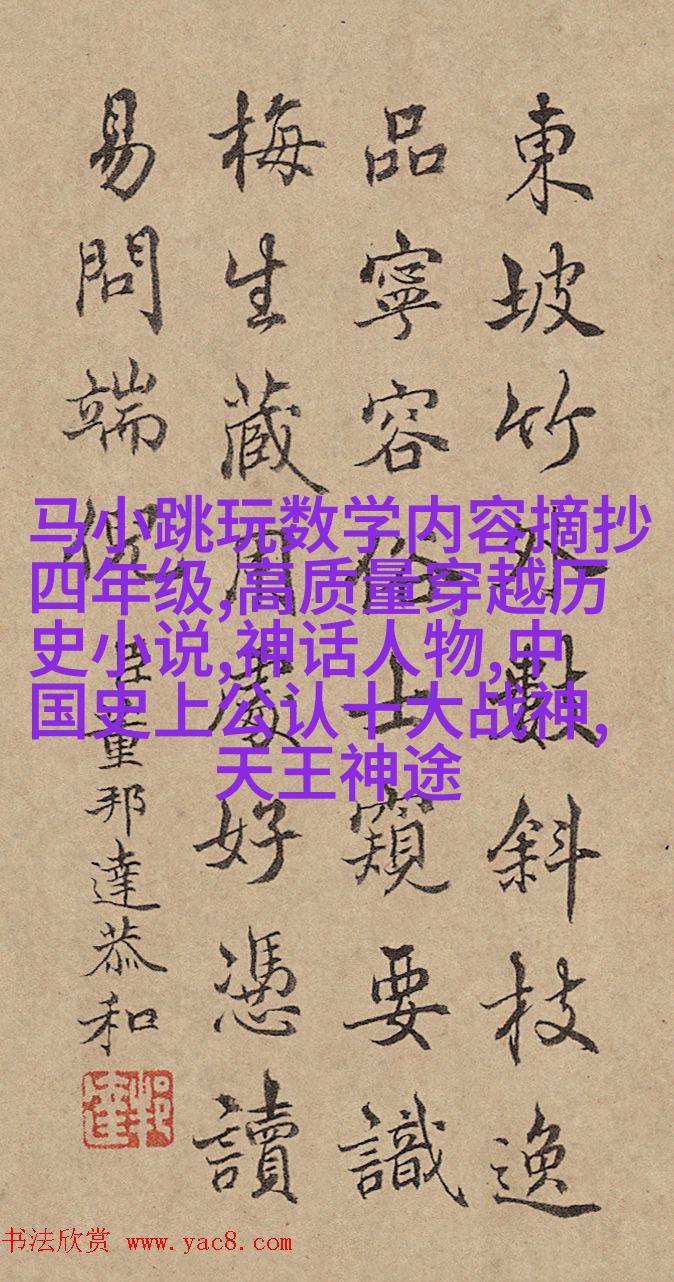 東坡竹外數斜枝逸
品寧容俗士窺要識
梅生藏用處好憑讀
易問端倪
臣董邦達恭和
马小跳玩数学内容摘抄
四年级,高质量穿越历
史小说,神话人物,中
国史上公认十大战神,
天王神途
书法欣赏 www.yac8.com